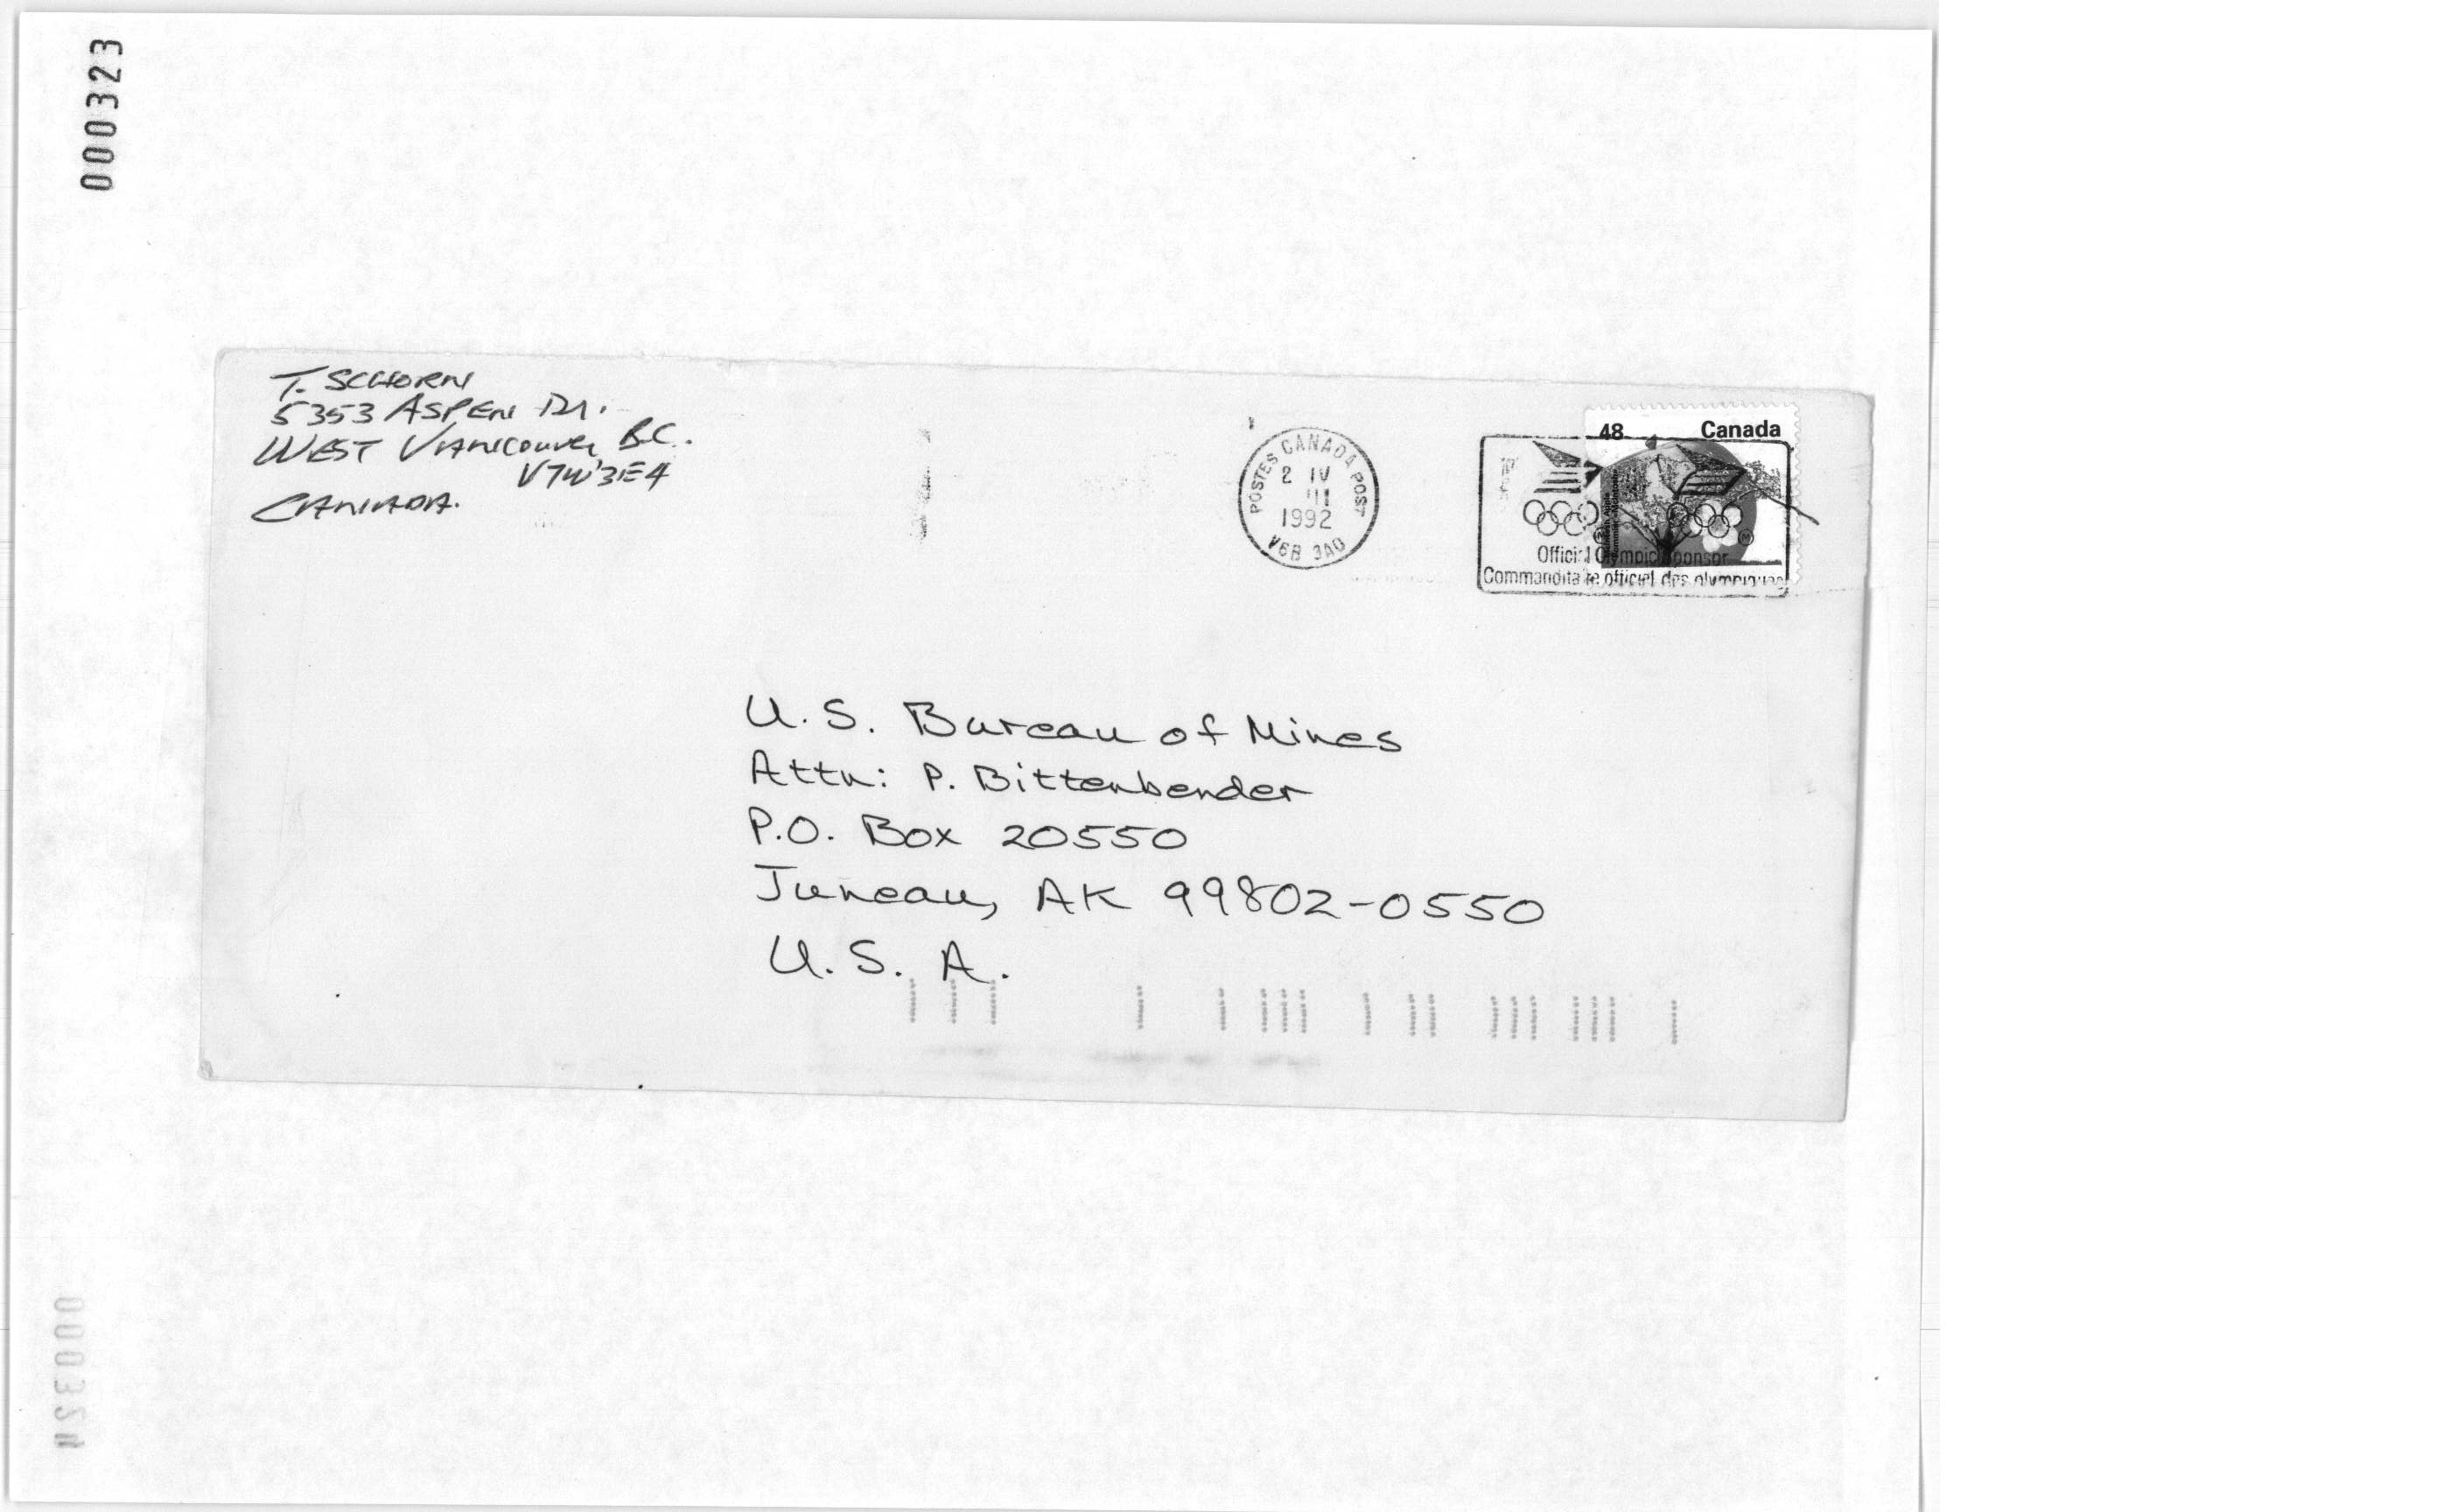 000323
T. SCHORN
5353 ASPEN DR.
WEST VANCOUVER BC.
V7W 3E4
CANADA.
POSTES CANADA POST
2 IV
1992
V6B 3A0
48 Canada
Official Olympic Sponsor
Commanditaire officiel des olympiques
U.S. Bureau of Mines
Attn: P. Bittenbender
P.O. Box 20550
Juneau, AK 99802-0550
U.S. A.